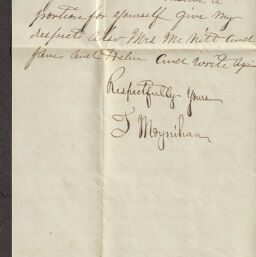 portion for yourself give my
respects also Mrs Mc Nitt and
Jane and Helen and write again
Respectfully Yours
T Moynihan